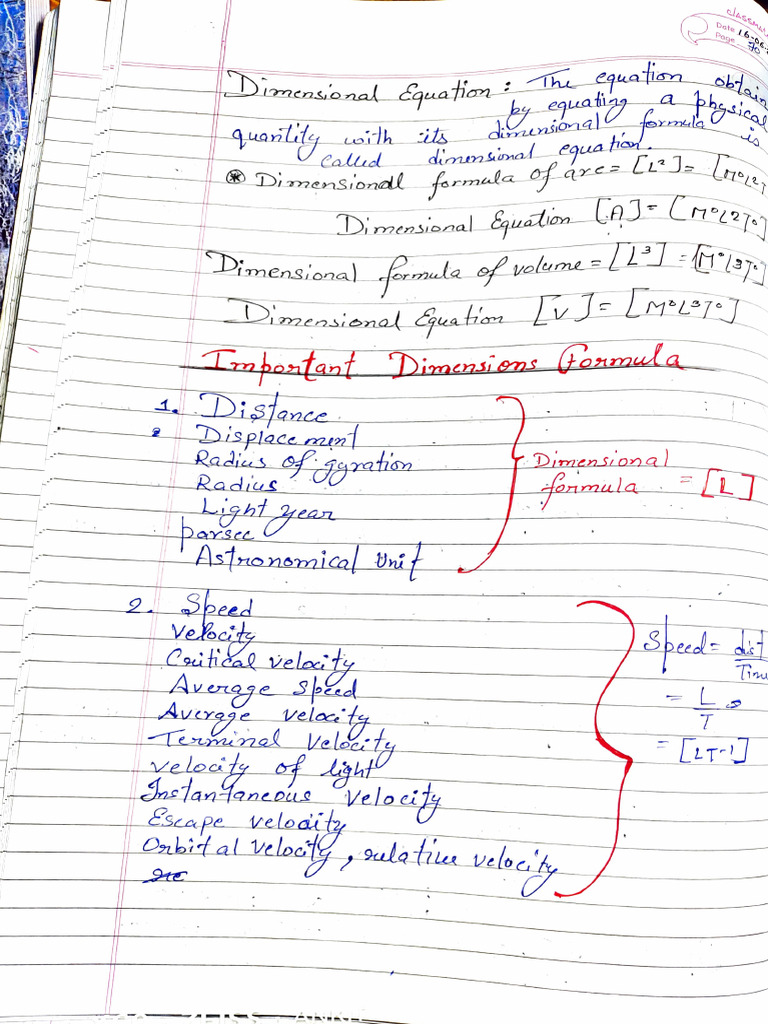 classmate
Date 16-06-
Page 70
Dimensional Equation : The equation obtain
by equating a physical
quantity with its dimensional formula is
called dimensional equation.
⊛ Dimensional formula of are = [L²] = [M⁰L²T
Dimensional Equation [A] = [M⁰L²T⁰]
Dimensional formula of volume = [L³] = [M⁰L³T⁰]
Dimensional Equation [V] = [M⁰L³T⁰]
Important Dimensions formula
1. Distance
Displacement
Radius of gyration
Radius
Light year
parsec
Astronomical Unit
Dimensional
formula = [L]
2. Speed
Velocity
Critical velocity
Average speed
Average velocity
Terminal velocity
velocity of light
Instantaneous velocity
Escape velocity
Orbital velocity, relative velocity
Speed = dist
Time
= L
T
= [LT-1]